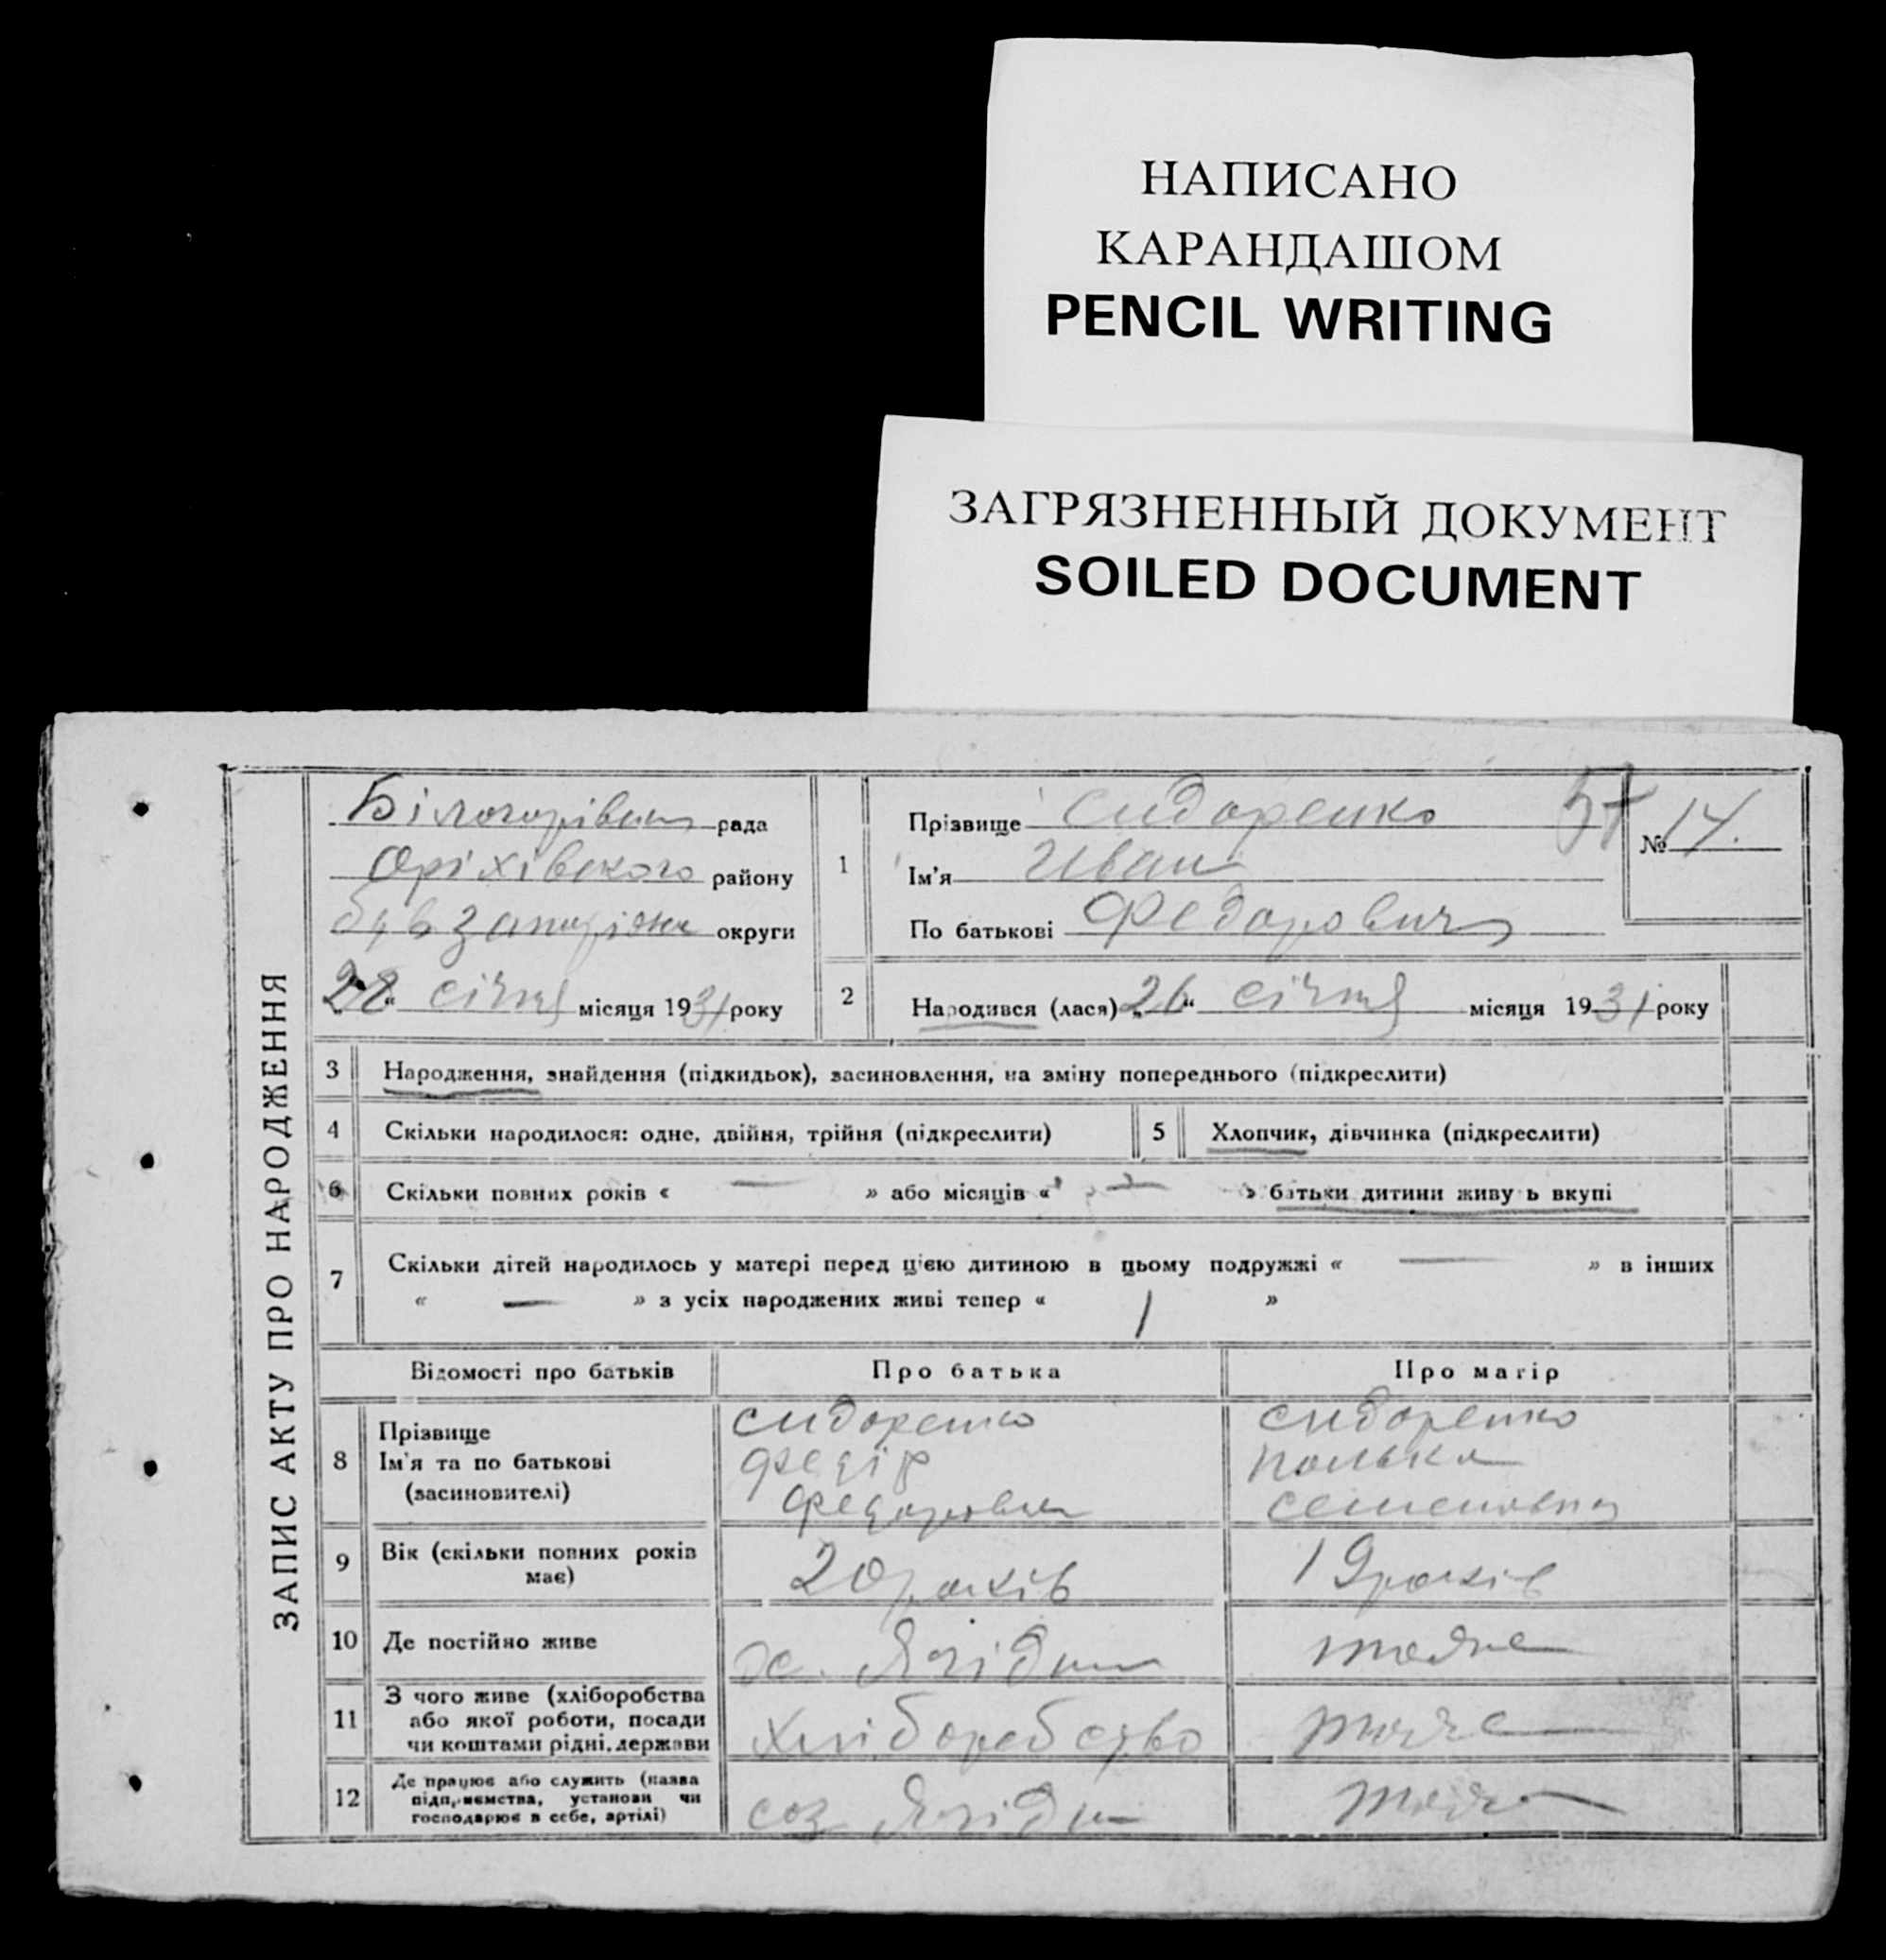 НАПИСАНО
КАРАНДАШОМ
PENCIL WRITING
ЗАГРЯЗНЕННЫЙ ДОКУМЕНТ
SOILED DOCUMENT
ЗАПИС АКТУ ПРО НАРОДЖЕННЯ
рада
Оріхівского району
округи
28 " січня місяця 1931 року
1
Прізвище Сидоренко
Ім'я Иван
По батькові Федорович
57
№ 14.
2 Народився (лася) „26" січня місяця 1931 року
3 Народження, знайдення (підкидьок), засиновлення, на зміну попереднього (підкреслити)
4 Скільки народилося: одне, двійня, трійня (підкреслити)
5 Хлопчик, дівчинка (підкреслити)
6 Скільки повних років « — » або місяців « — » батьки дитини живу ь вкупі
7 Скільки дітей народилось у матері перед цією дитиною в цьому подружжі « — » в інших
« — » з усіх народжених живі тепер « 1 »
Відомості про батьків Про батька Про матір
8 Прізвище Сидоренко Сидоренко
Ім'я та по батькові Федір
(засиновителі) Федорович Семеновна
9 Вік (скільки повних років має) 20 років 19 років
10 Де постійно живе тоже
11 З чого живе (хліборобства
або якої роботи, посади
чи коштами рідні, держави Хліборобство тоже
12 Де працює або служить (назва
підприємства, установи чи
господарює в себе, артілі) соз тоже